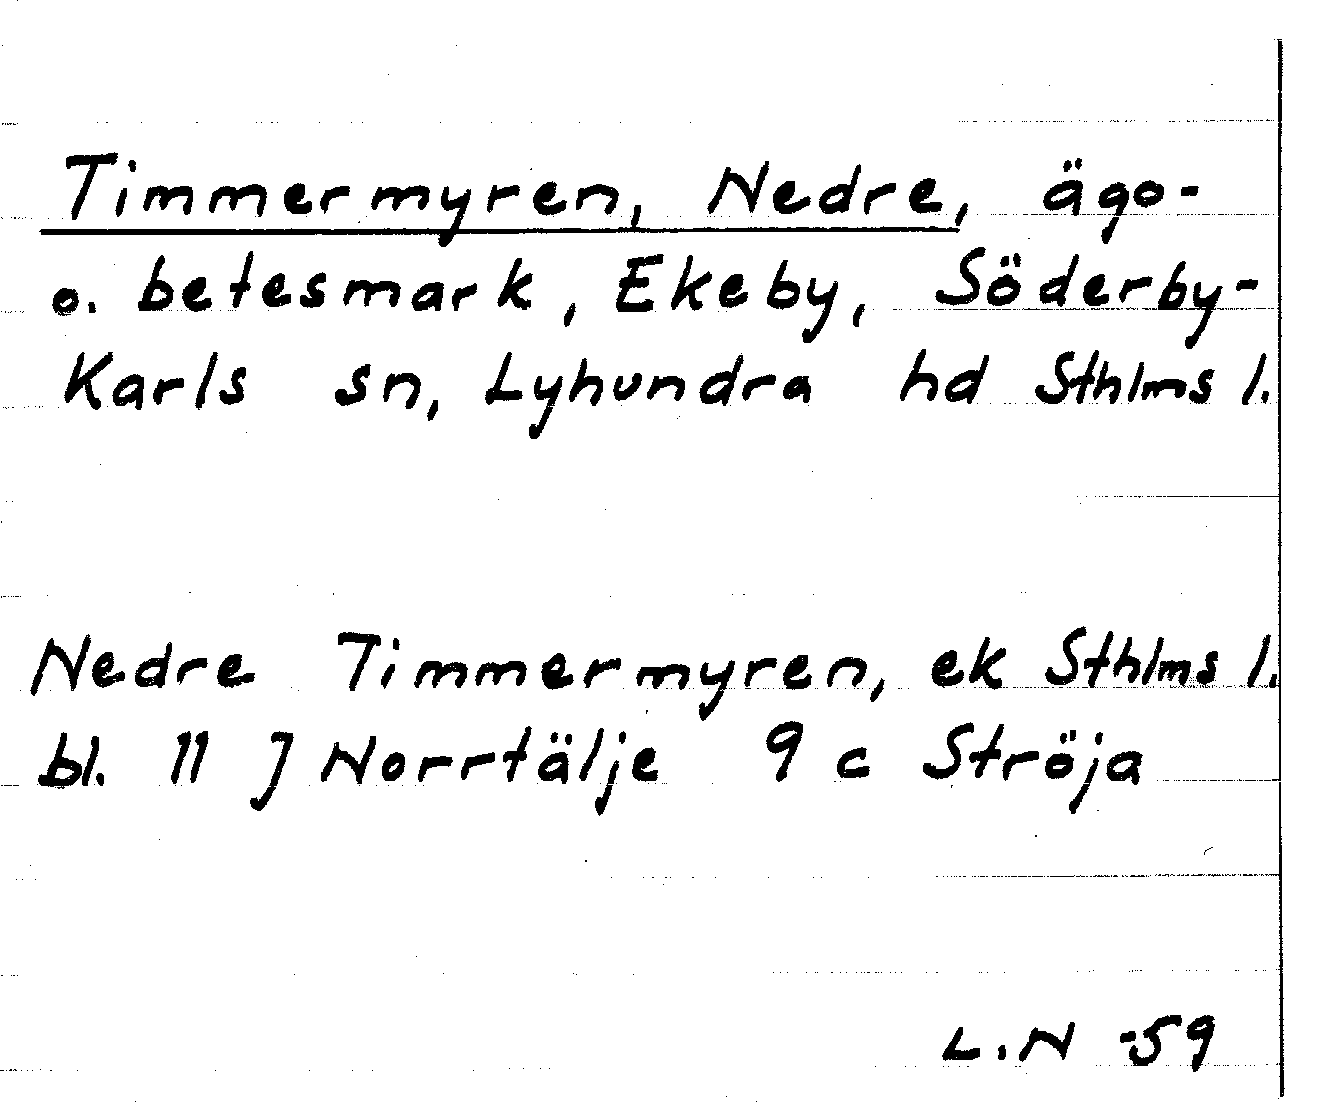 Timmermyren, Nedre, ägo-
o. betesmark, Ekeby, Söderby-
Karls sn, Lyhundra hd Sthlms l.
Nedre Timmermyren, ek Sthlms l.
bl. 11 J Norrtälje 9 c Ströja
L.N -59